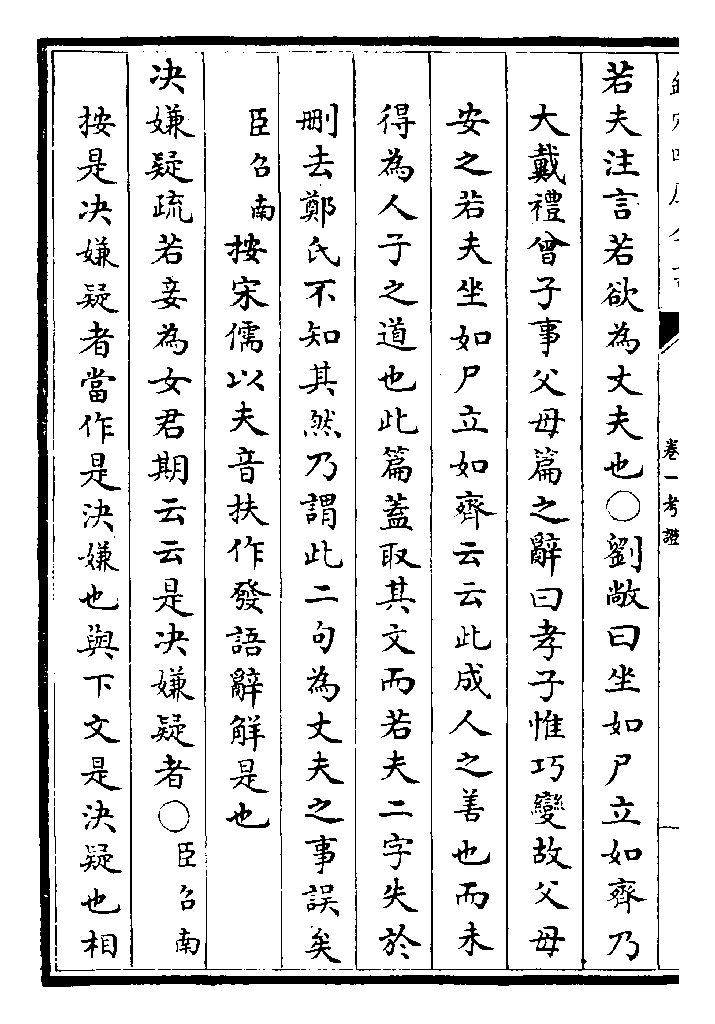 卷一考證
若夫注言若欲為丈夫也○劉敞曰坐如尸立如齊乃
大戴禮曾子事父母篇之辭曰孝子惟巧變故父母
安之若夫坐如尸立如齊云云此成人之善也而未
得為人子之道也此篇蓋取其文而若夫二字失於
刪去鄭氏不知其然乃謂此二句為丈夫之事誤矣
臣召南按宋儒以夫音扶作發語辭解是也
決嫌疑疏若妾為女君期云云是決嫌疑者○臣召南
按是決嫌疑者當作是決嫌也與下文是決疑也相